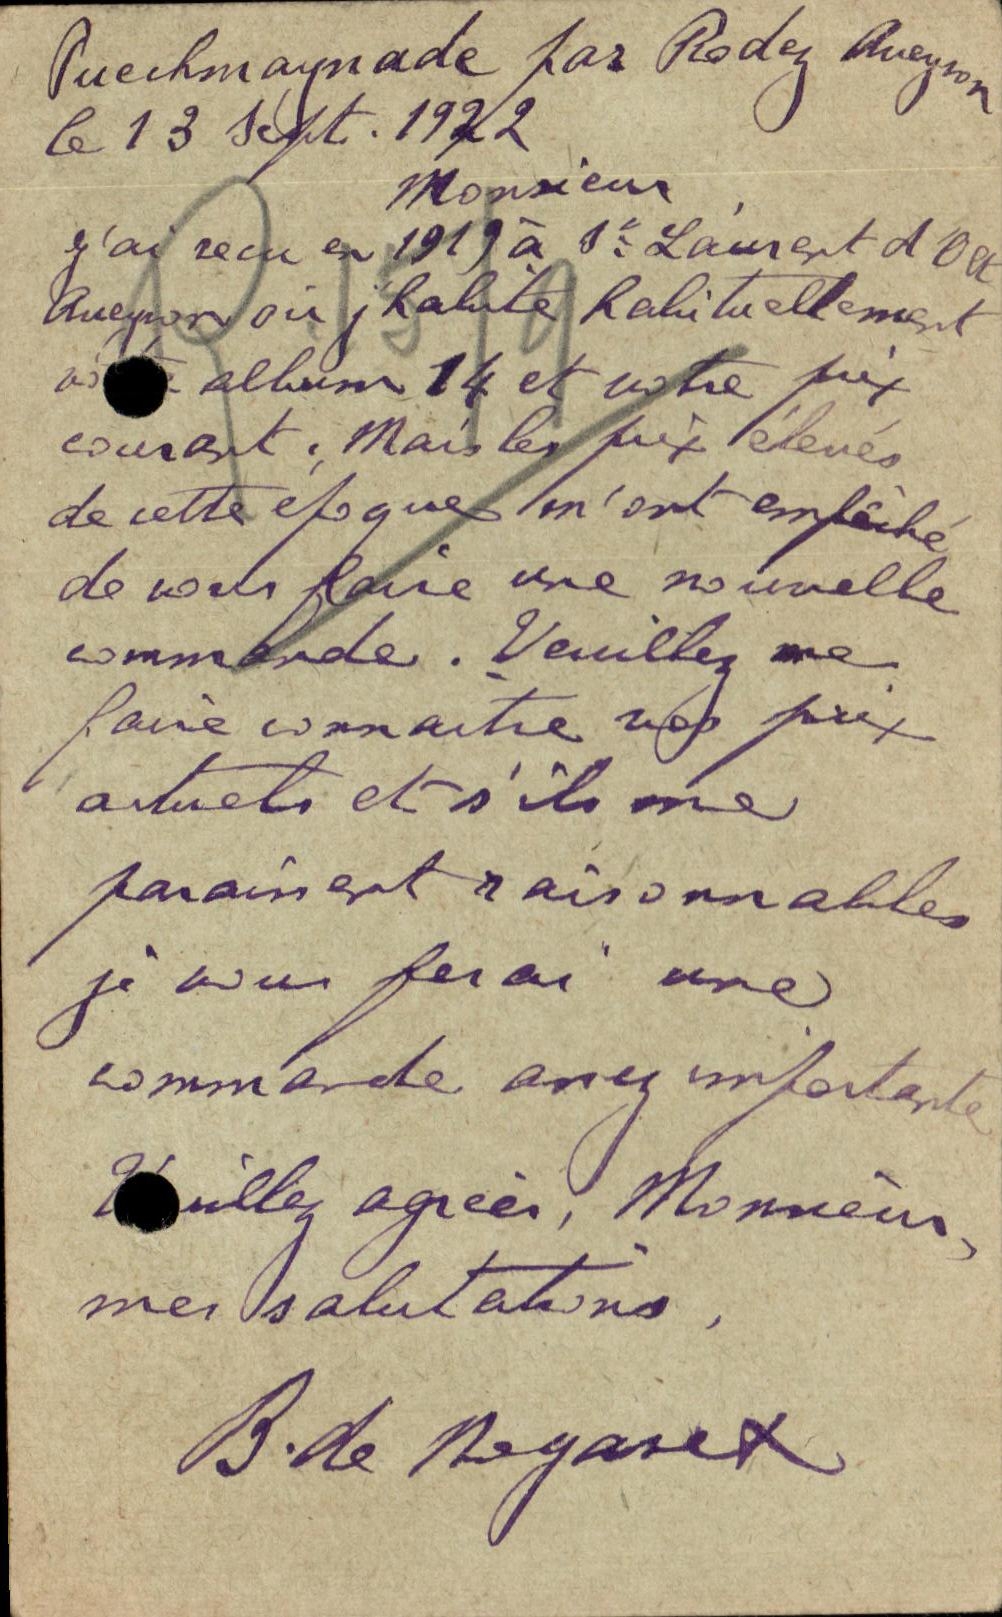 Puechmaynade par Rodez Aveyron
le 13 Sept. 1922
Monsieur
j'ai recu en 1919 à St Laurent d'Olt
Aveyron où j'habite habituellement
votre album 14 et votre prix
courant. Mais les prix élevés
de cette époque m'ont empêché
de vous faire une nouvelle
commande. Veuillez me
faire connaitre vos prix
actuels et s'ils me
paraissent raisonnables
je vous ferai une
commande assez importante
Veuillez agréer, Monsieur,
mes salutations.
B. de